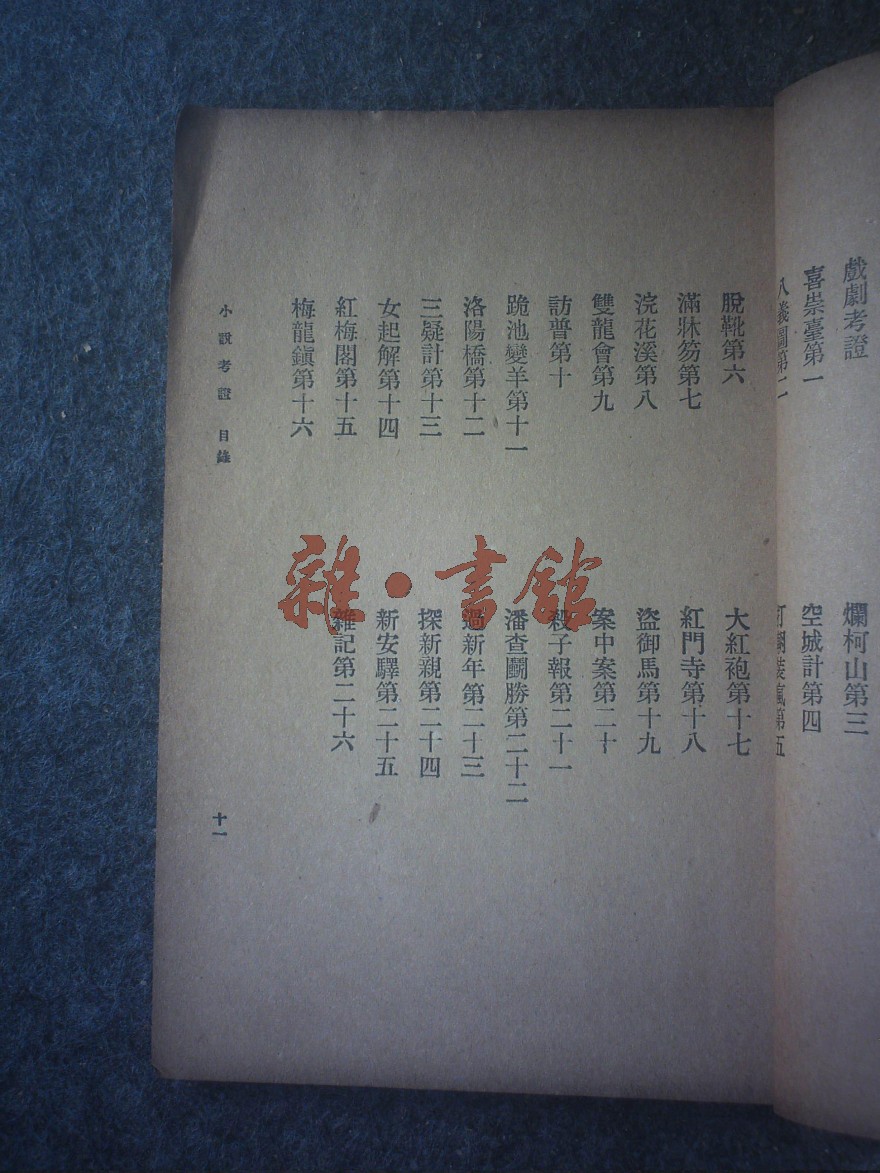 戲劇考證
喜崇臺第一
爛柯山第三
空城計第四
脫靴第六
滿牀笏第七
浣花溪第八
雙龍會第九
訪普第十
跪池變羊第十一
洛陽橋第十二
三疑計第十三
女起解第十四
紅梅閣第十五
梅龍鎭第十六
大紅袍第十七
紅門寺第十八
盜御馬第十九
案中案第二十
殺子報第二十一
潘查鬭勝第二十二
過新年第二十三
探新親第二十四
新安驛第二十五
雜記第二十六
小說考證 目錄
十一
雜·書館